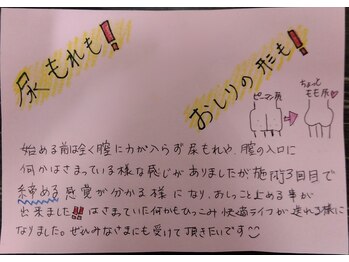 尿もれも!
おしりの形も!
ピーマン尻
ちょっと
もも尻♡
始める前は全く膣に力が入らず尿もれや、膣の入口に
何かはさまっている様な感じがありましたが施術3回目で
締める感覚が分かる様になり、おしっこ止める事が
出来ました!!はさまっていた何かもひっこみ快適ライフが送れる様に
なりました。ぜひみなさまにも受けて頂きたいです☺